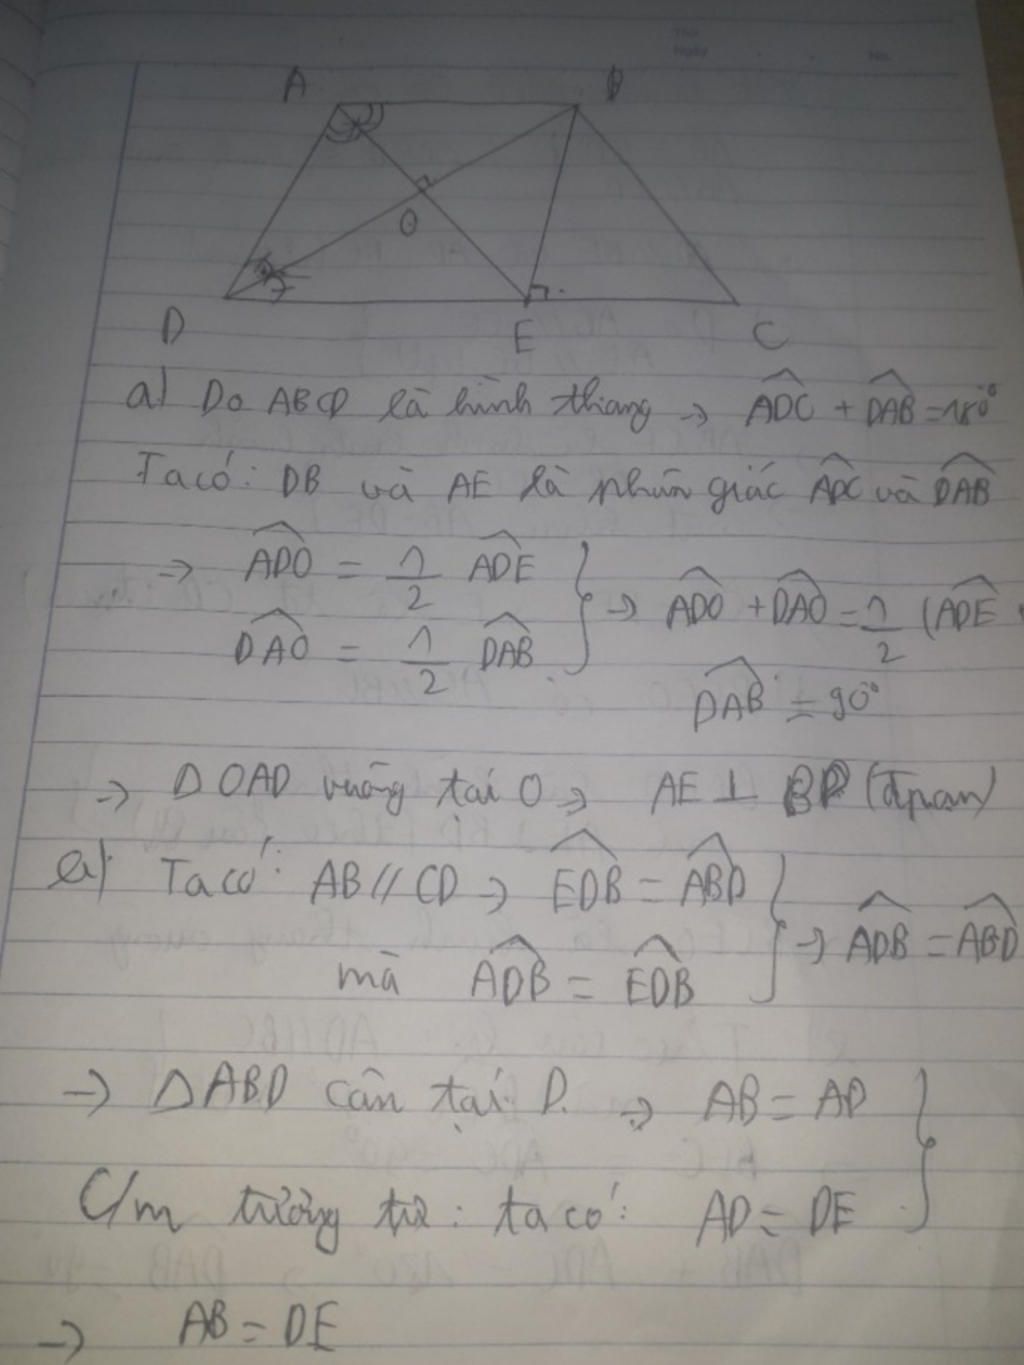 Thứ
Ngày
No.
A B
O
D E C
a) Do ABCD là hình thang → \widehat{ADC} + \widehat{DAB} = 180°
Ta có: DB và AE là phân giác \widehat{ADC} và \widehat{DAB}
→ \widehat{ADO} = 1/2 \widehat{ADE} } → \widehat{ADO} + \widehat{DAO} = 1/2 (\widehat{ADE} +
\widehat{DAO} = 1/2 \widehat{DAB}
\widehat{DAB} = 90°
→ Δ OAD vuông tại O → AE ⊥ BD (đpcm)
Ta có: AB // CD → \widehat{EDB} = \widehat{ABD} } → \widehat{ADB} = \widehat{ABD}
mà \widehat{ADB} = \widehat{EDB}
→ Δ ABD cân tại D. → AB = AD }
C/m tương tự: ta có: AD = DE
→ AB = DE